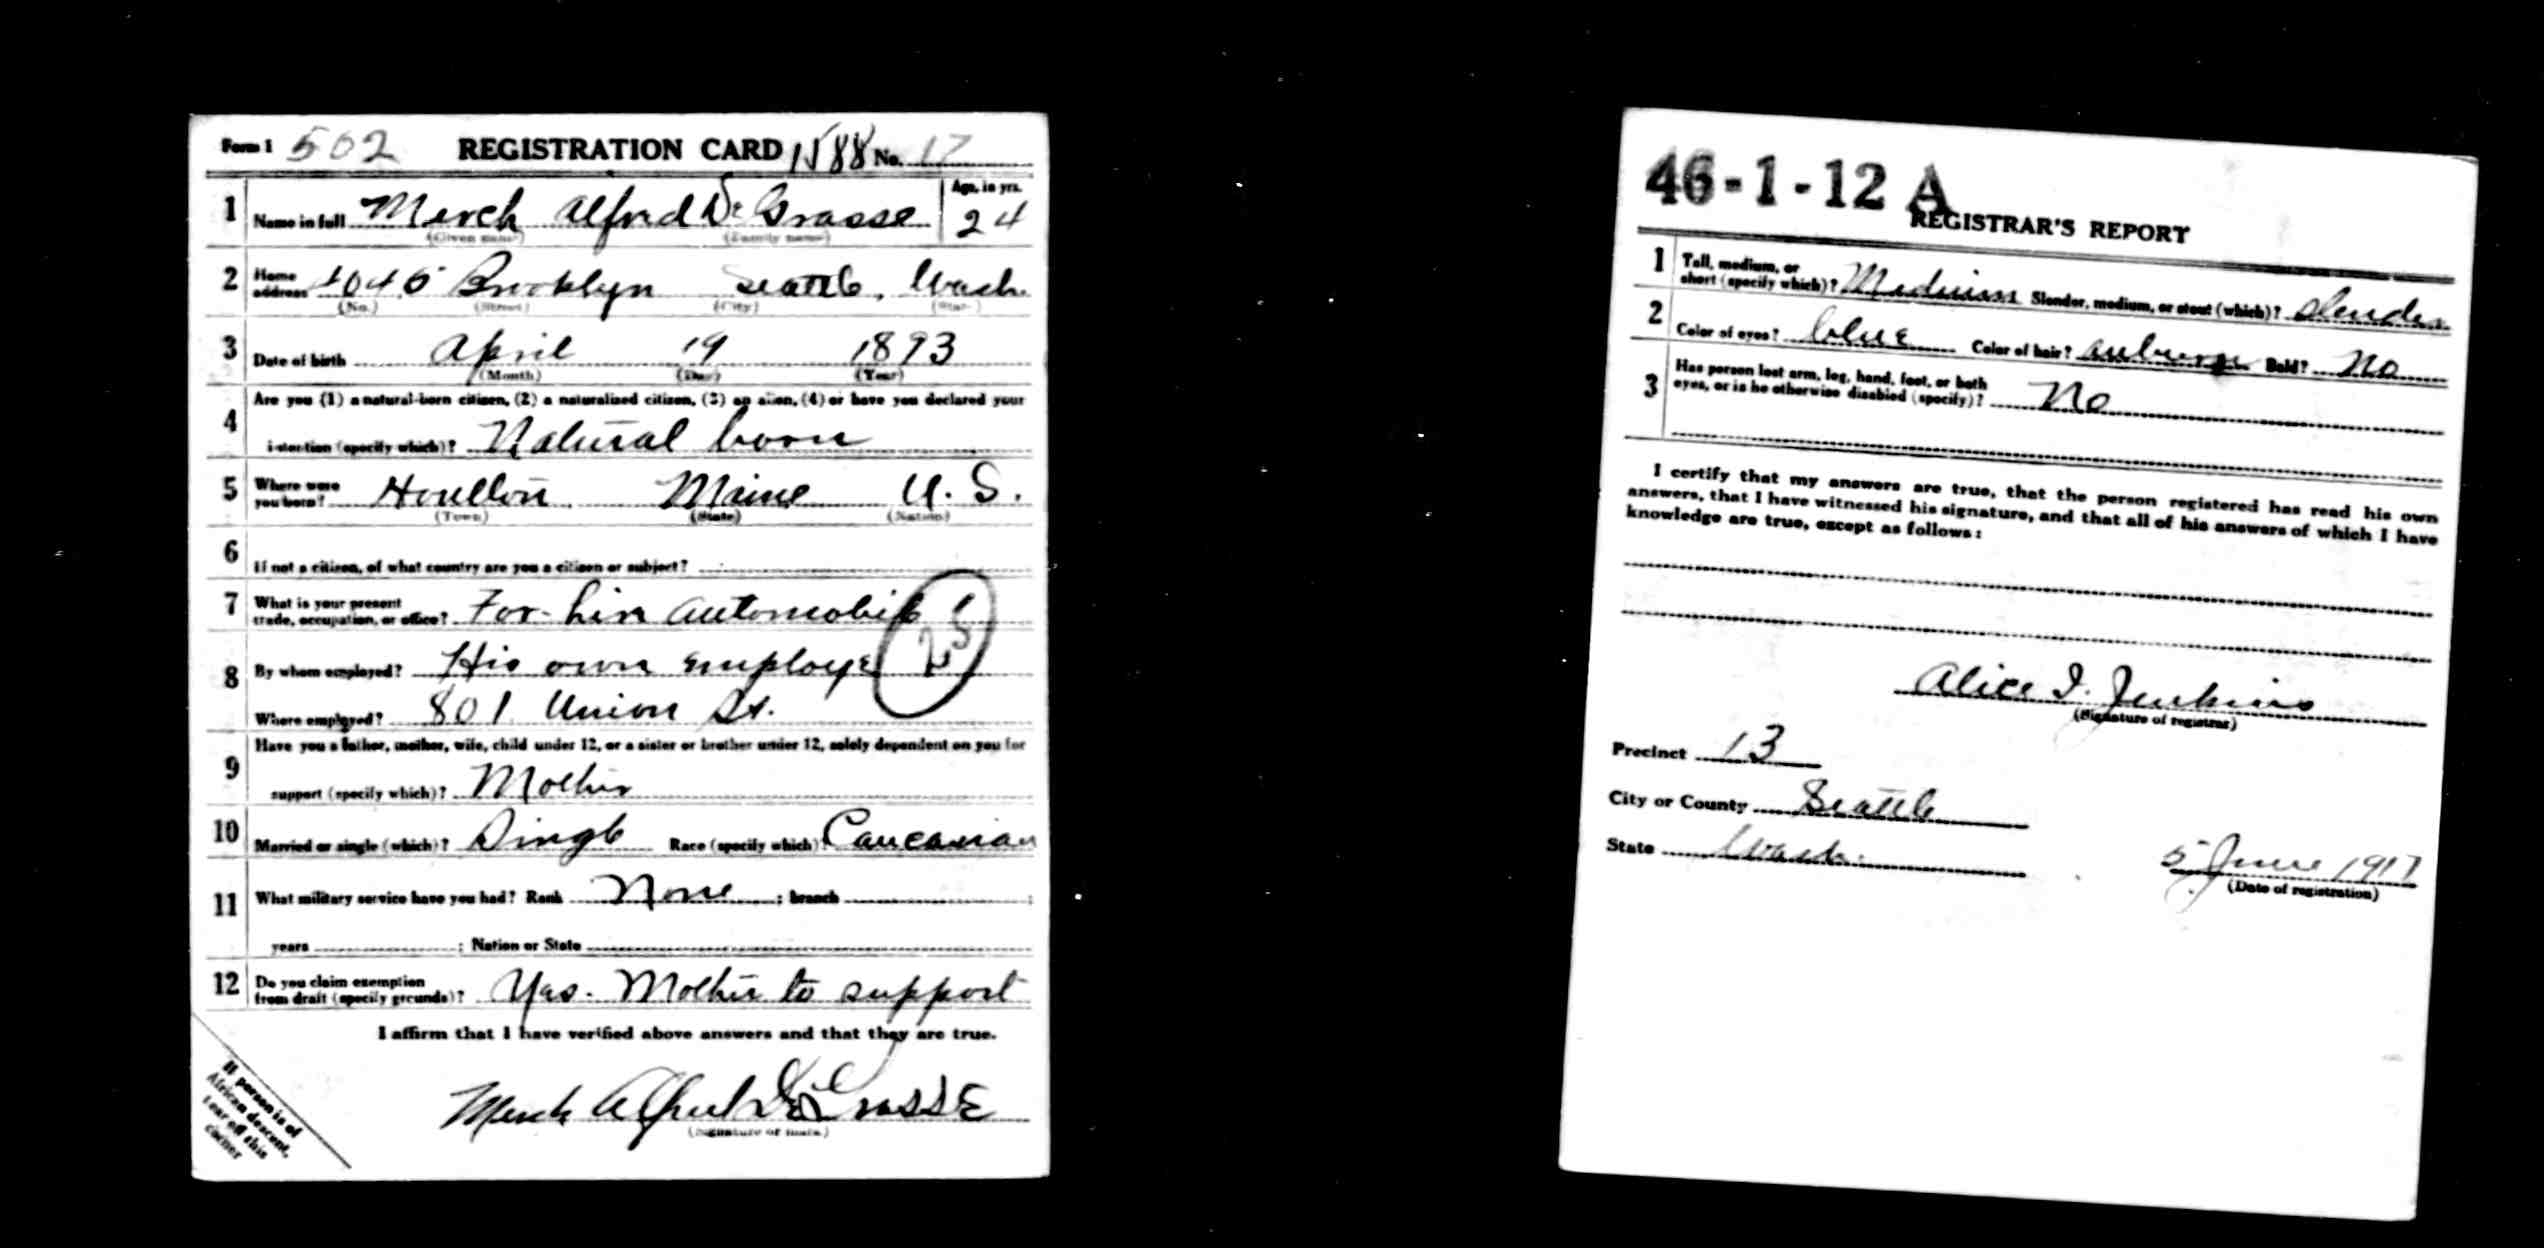 Form 1 502 REGISTRATION CARD 1588 No. 17
1 Name in full Merch Alfred De Grasse Age, in yrs. 24
(Given name) (Family name)
2 Home address 4045 Brooklyn Seattle, Wash.
(No.) (Street) (City) (State)
3 Date of birth April 19 1893
(Month) (Day) (Year)
4 Are you (1) a natural-born citizen, (2) a naturalized citizen, (3) an alien, (4) or have you declared your
intention (specify which)? Natural born
5 Where were you born? Houlton Maine U. S.
(Town) (State) (Nation)
6 If not a citizen, of what country are you a citizen or subject?
7 What is your present trade, occupation, or office? For-hire automobile
8 By whom employed? His own employe
25
Where employed? 801 Union St.
9 Have you a father, mother, wife, child under 12, or a sister or brother under 12, solely dependent on you for
support (specify which)? Mother
10 Married or single (which)? Single Race (specify which)? Caucasian
11 What military service have you had? Rank None ; branch ;
years ; Nation or State
12 Do you claim exemption from draft (specify grounds)? Yes. Mother to support
I affirm that I have verified above answers and that they are true.
Merch Alfred De GrassE
(Signature or mark.)
If person is of
African descent,
tear off this
corner
46-1-12 A
REGISTRAR'S REPORT
1 Tall, medium, or short (specify which)? Medium Slender, medium, or stout (which)? Slender
2 Color of eyes? blue Color of hair? auburn Bald? No
3 Has person lost arm, leg, hand, foot, or both eyes, or is he otherwise disabled (specify)? No
I certify that my answers are true, that the person registered has read his own
answers, that I have witnessed his signature, and that all of his answers of which I have
knowledge are true, except as follows:
Alice I. Jenkins
(Signature of registrar)
Precinct 13
City or County Seattle
State Wash.
5 June 1917
(Date of registration)